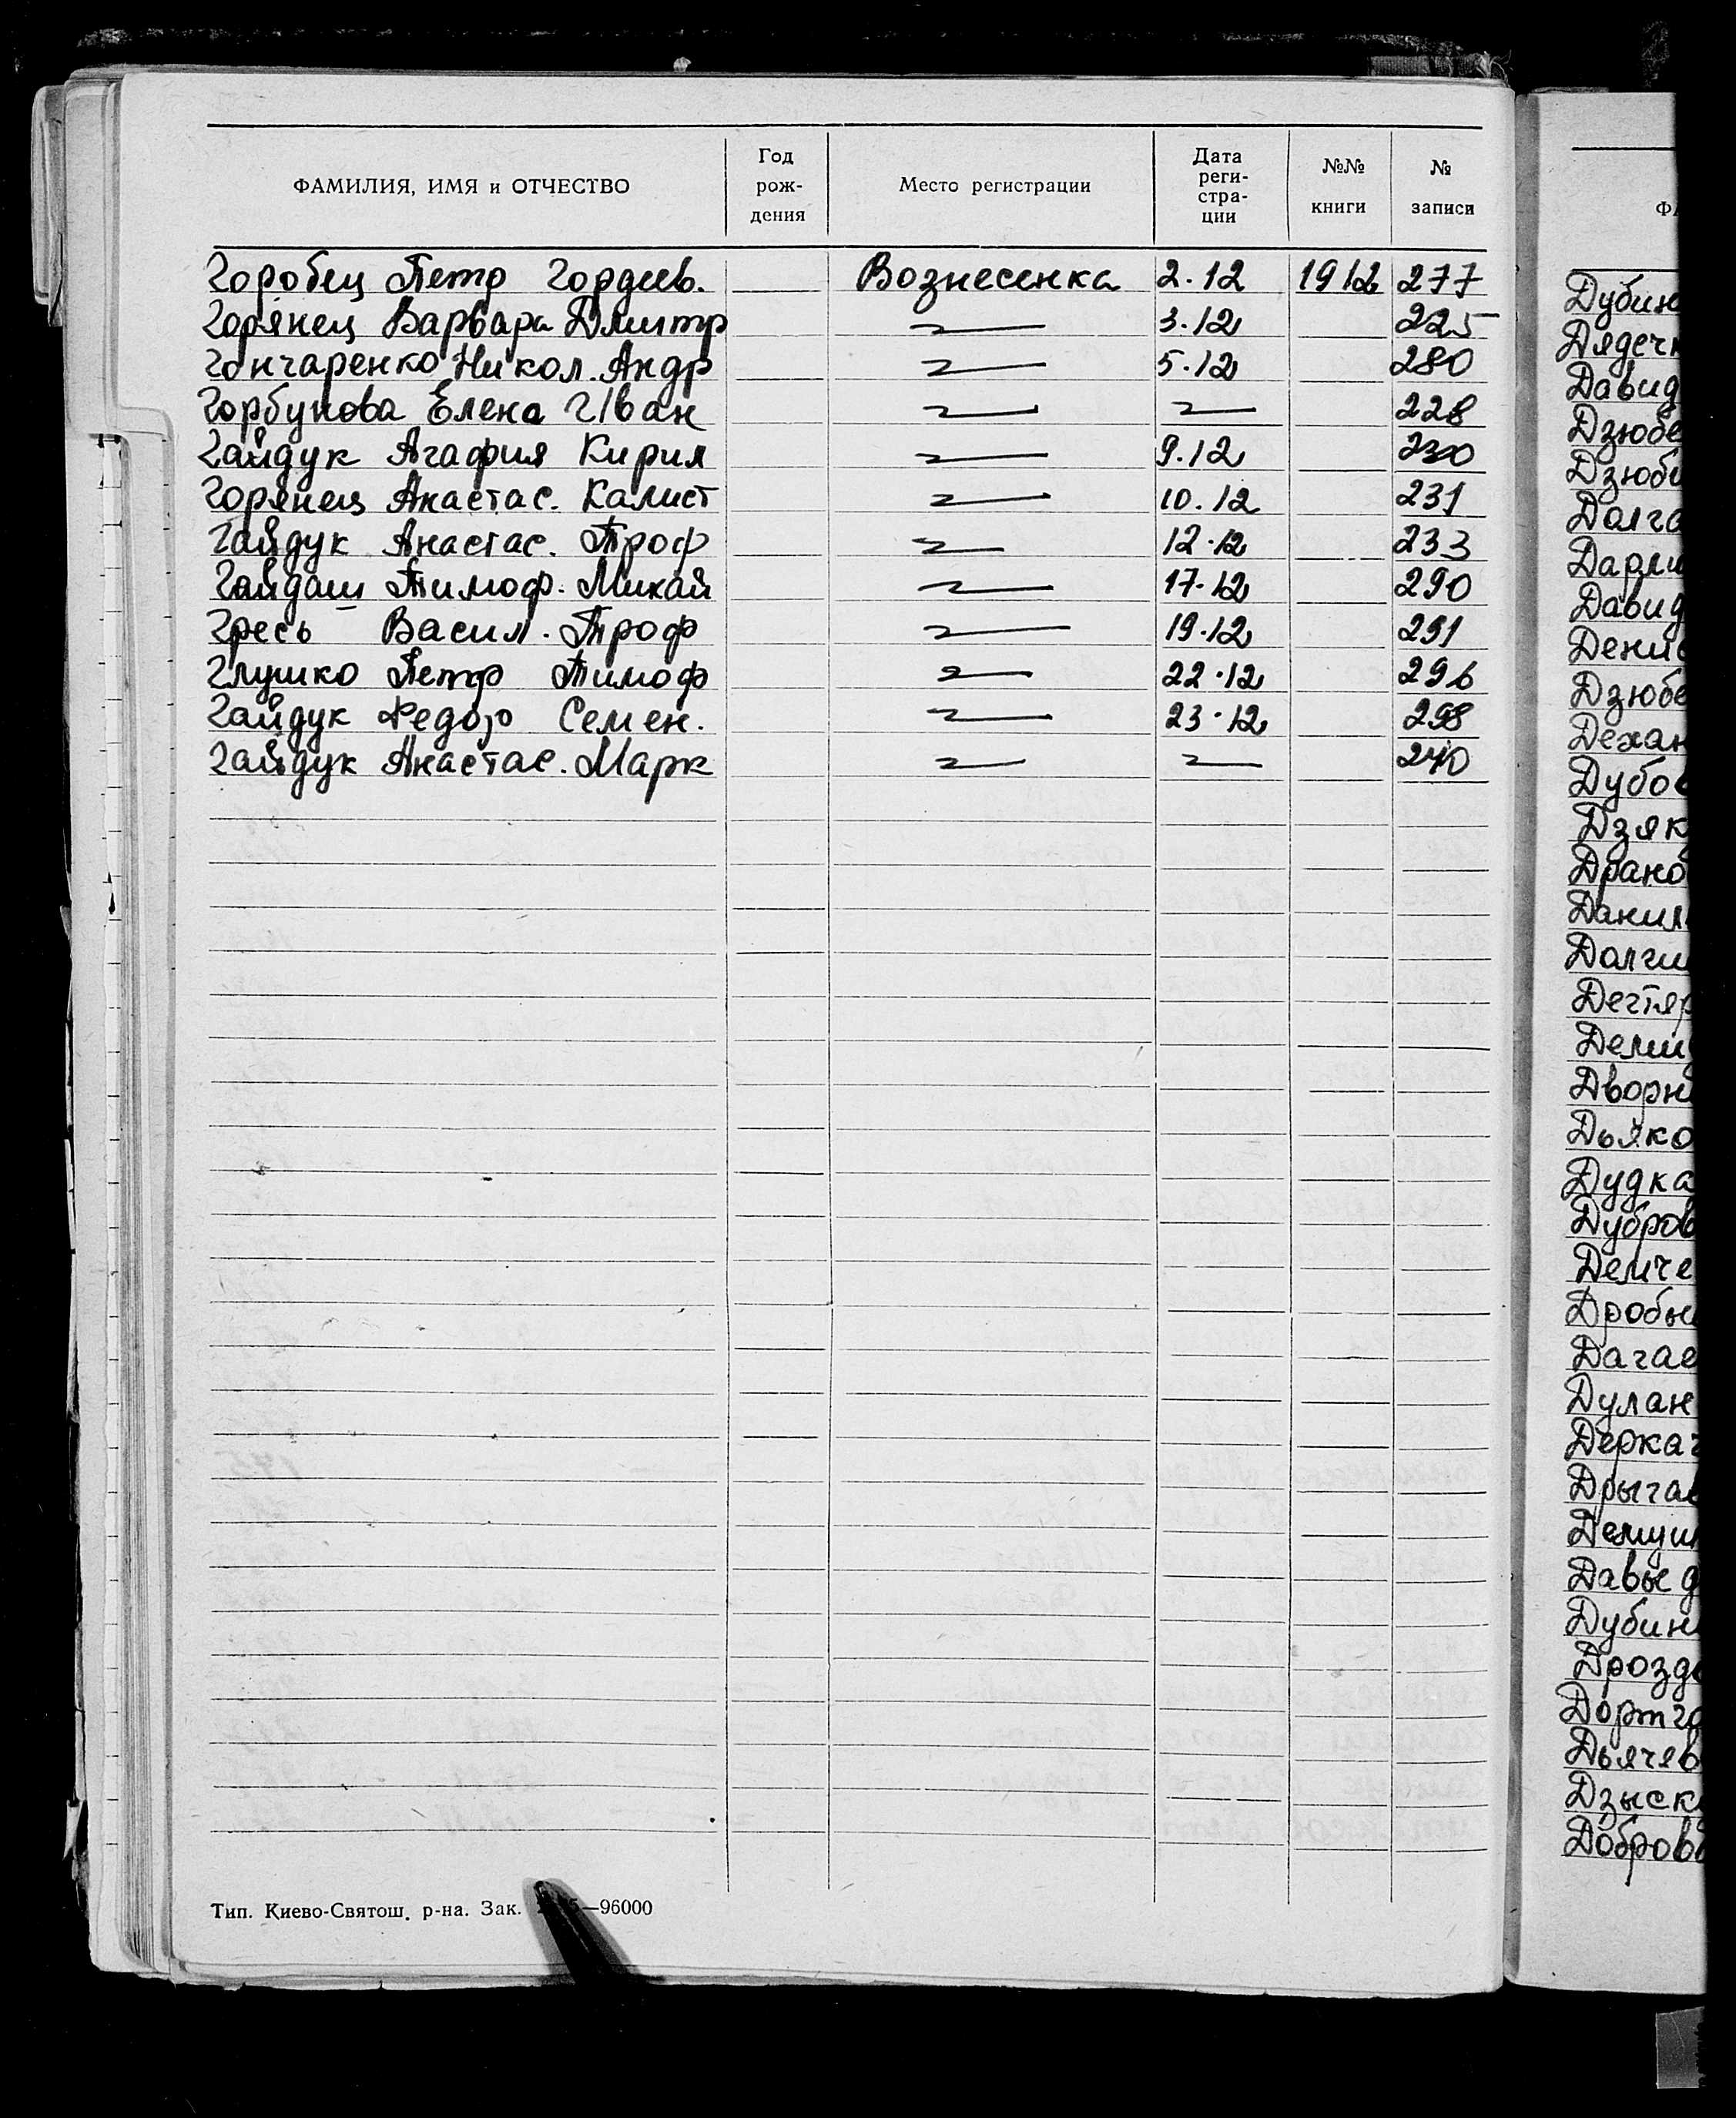 ФАМИЛИЯ, ИМЯ и ОТЧЕСТВО Год рож- дения Место регистрации Дата реги- стра- ции №№ книги № записи
Горобец Петр Гордеев. Вознесенка 2.12 1912 277
Горянец Варвара Дмитр 3.12 225
Гончаренко Никол. Андр 5.12 280
Горбунова Елена Иван 228
Гайдук Агафия Кирил 9.12 230
Горянец Анастас. Калист 10.12 231
Гайдук Анастас. Троф 12.12 233
Гайдаш Тимоф. Михай 17.12 290
Гресь Васил. Троф 19.12 291
Глушко Петр Тимоф 22.12 296
Гайдук Федор Семен. 23.12 298
Гайдук Анастас. Марк 240
Тип. Киево-Святош. р-на. Зак. —96000
ФА
Дубин
Дядеч
Давид
Дзюбе
Дзюб
Долго
Давид
Дени
Дзюбе
Дехан
Дубов
Дзяк
Драно
Данил
Долги
Дегтяр
Дворн
Дьяко
Дудка
Дубров
Демче
Дробы
Дагае
Дулан
Деркач
Дрыга
Демуш
Давыд
Дубин
Дрозд
Дортго
Дьячев
Дзыск
Доброво